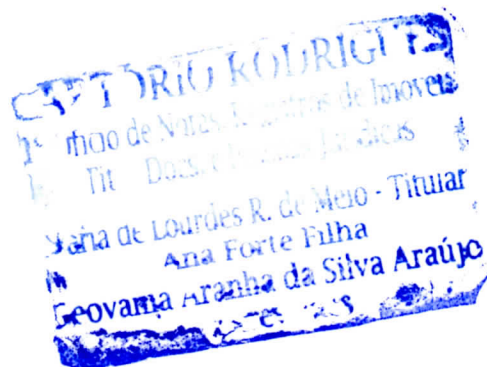 CARTÓRIO RODRIGUES
Ofício de Notas, Registros de Imóveis
Tit Docs. e Pessoas Jurídicas
Maria de Lourdes R. de Melo - Titular
Ana Forte Filha
Geovania Aranha da Silva Araújo